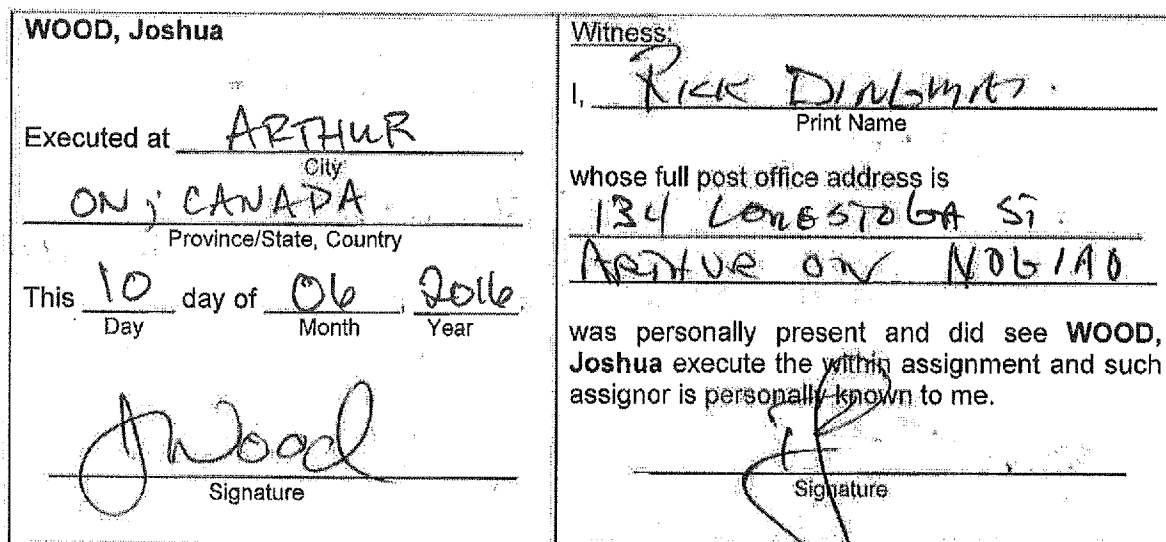 WOOD, Joshua
Executed at ARTHUR
City
ON, CANADA
Province/State, Country
This 10 day of 06, 2016
Day Month Year
JWood
Signature
Witness:
I, Rick
Print Name
whose full post office address is
134 ST.
ARTHUR ON N0G1A0
was personally present and did see WOOD,
Joshua execute the within assignment and such
assignor is personally known to me.
Signature